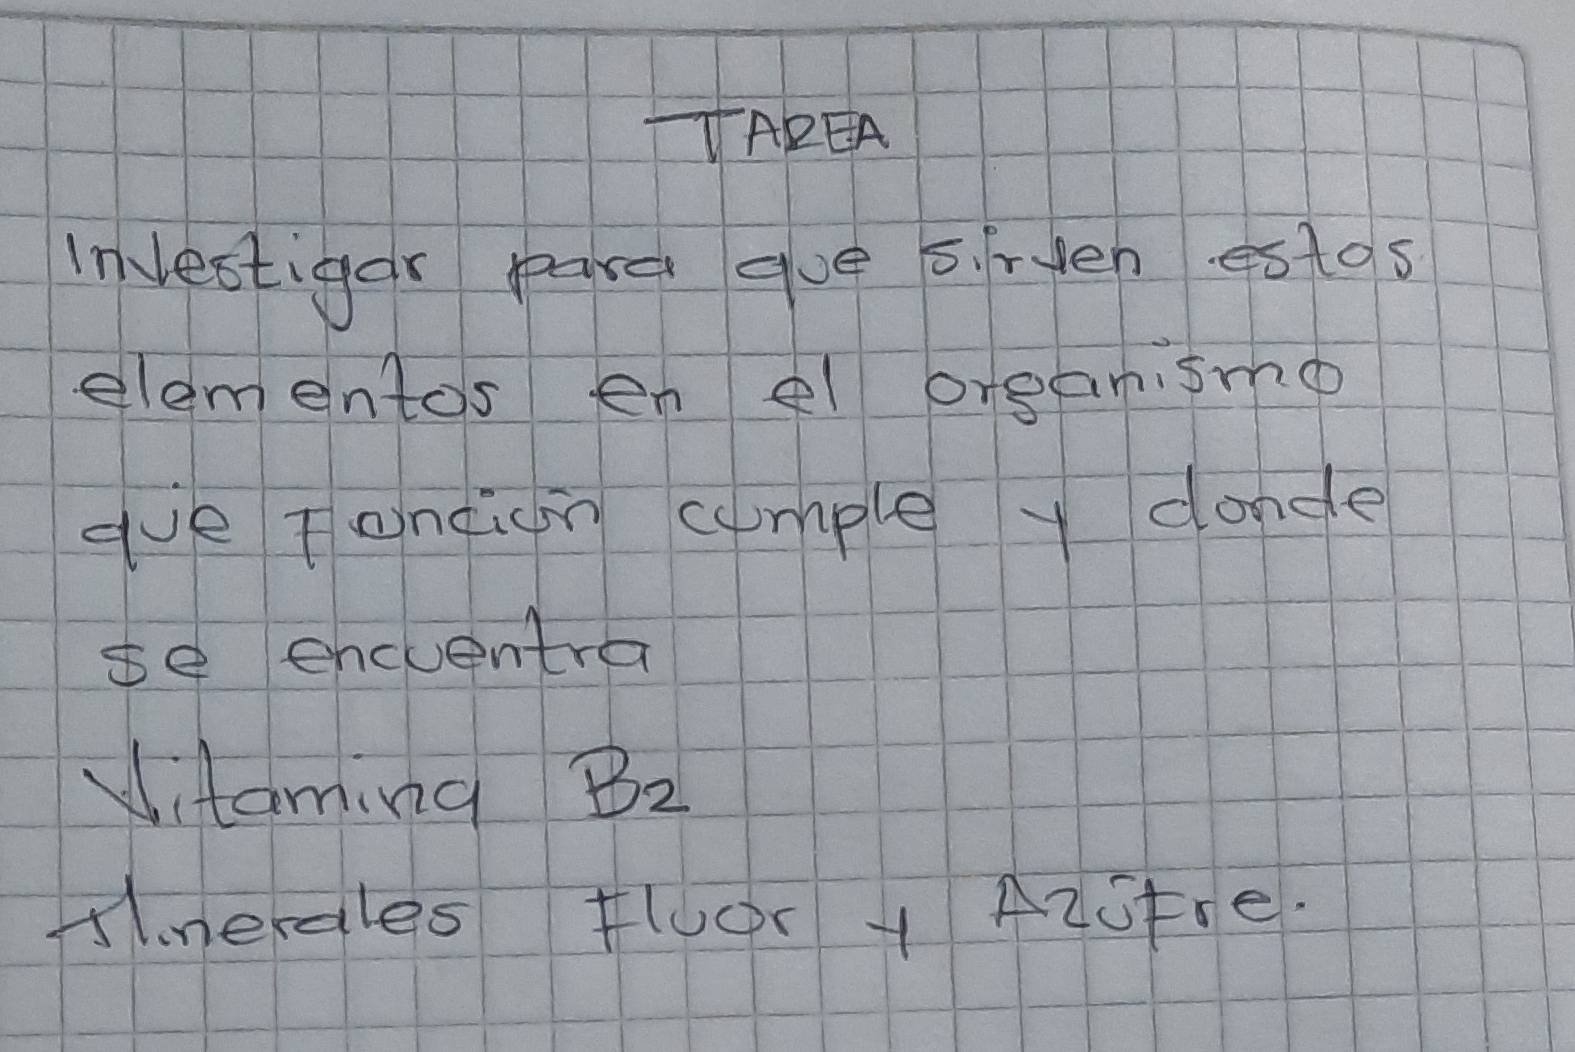 TAREA
Investigar para que sirven estos
elementos en el organismo
que Función cumple y donde
se encuentra
Vitamina B2
Minerales Fluor y Azúfre.